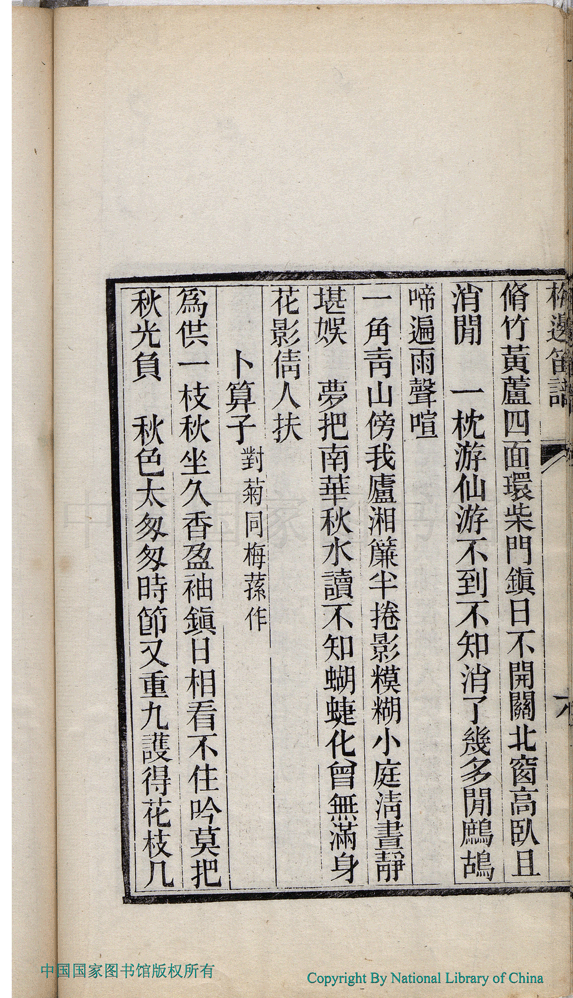 梅邊笛譜
六
脩竹黃蘆四面環柴門鎮日不開關北窗高臥且
消閒　一枕游仙游不到不知消了幾多閒鷓鴣
啼遍雨聲喧
一角靑山傍我廬湘簾半捲影糢糊小庭淸晝靜
堪娛　夢把南華秋水讀不知蝴蜨化曾無滿身
花影倩人扶
卜算子對菊同梅蓀作
爲供一枝秋坐久香盈袖鎮日相看不住吟莫把
秋光負　秋色太匆匆時節又重九護得花枝几
中国国家图书馆版权所有
Copyright By National Library of China